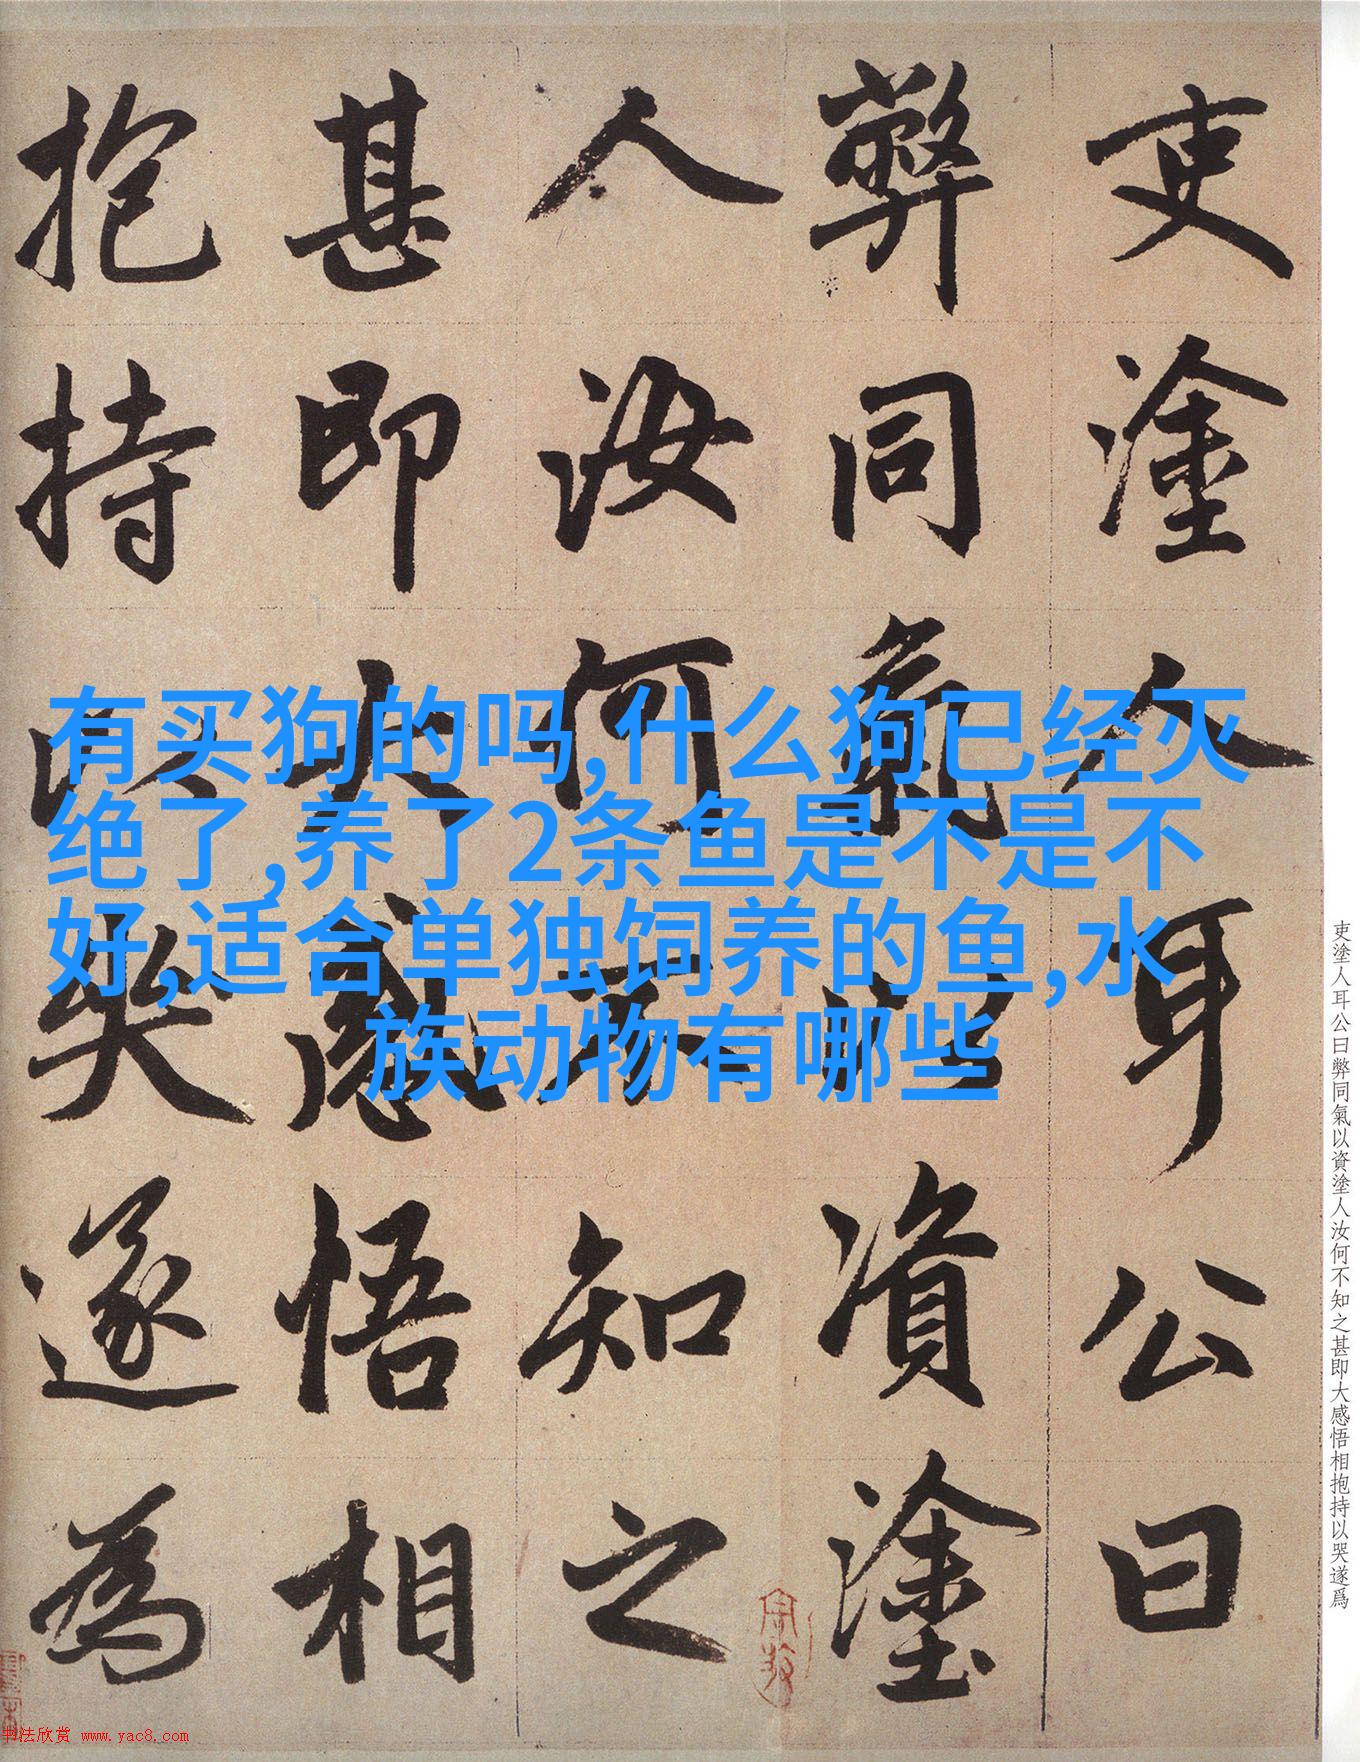 吏塗人耳公曰
弊同氣以資塗
人汝何不知之
甚即大感悟相
抱持以哭遂為
有买狗的吗,什么狗已经灭
绝了,养了2条鱼是不是不
好,适合单独饲养的鱼,水
族动物有哪些
吏塗人耳公曰弊同氣以資塗人汝何不知之甚即大感悟相抱持以哭遂爲
书法欣赏 www.yac8.com